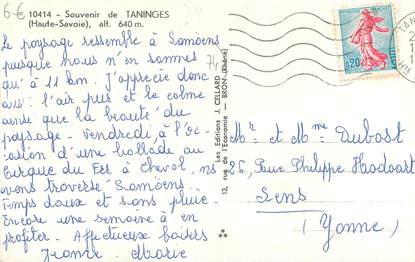 6 €
10414 - Souvenir de TANINGES
(Haute-Savoie), alt. 640 m.
74
Le paysage ressemble à Samoëns
puisque nous n'en sommes
qu'à 11 km. J'apprécie donc
aussi l'air pur et le calme
ainsi que la beauté du
paysage - Vendredi à l'oc-
casion d'une ballade au
Cirque du Fer à Cheval, ns
avons traversé Samoëns
Temps doux et sans pluie.
Encore une semaine à en
profiter - Affectueux baisers
Jeanne - Marie
Les Editions J. CELLARD
13, rue de l'Economie — BRON (Rhône)
0,20
Mr et Mme Dubost
25, Rue Philippe Hodoart
Sens
(Yonne)